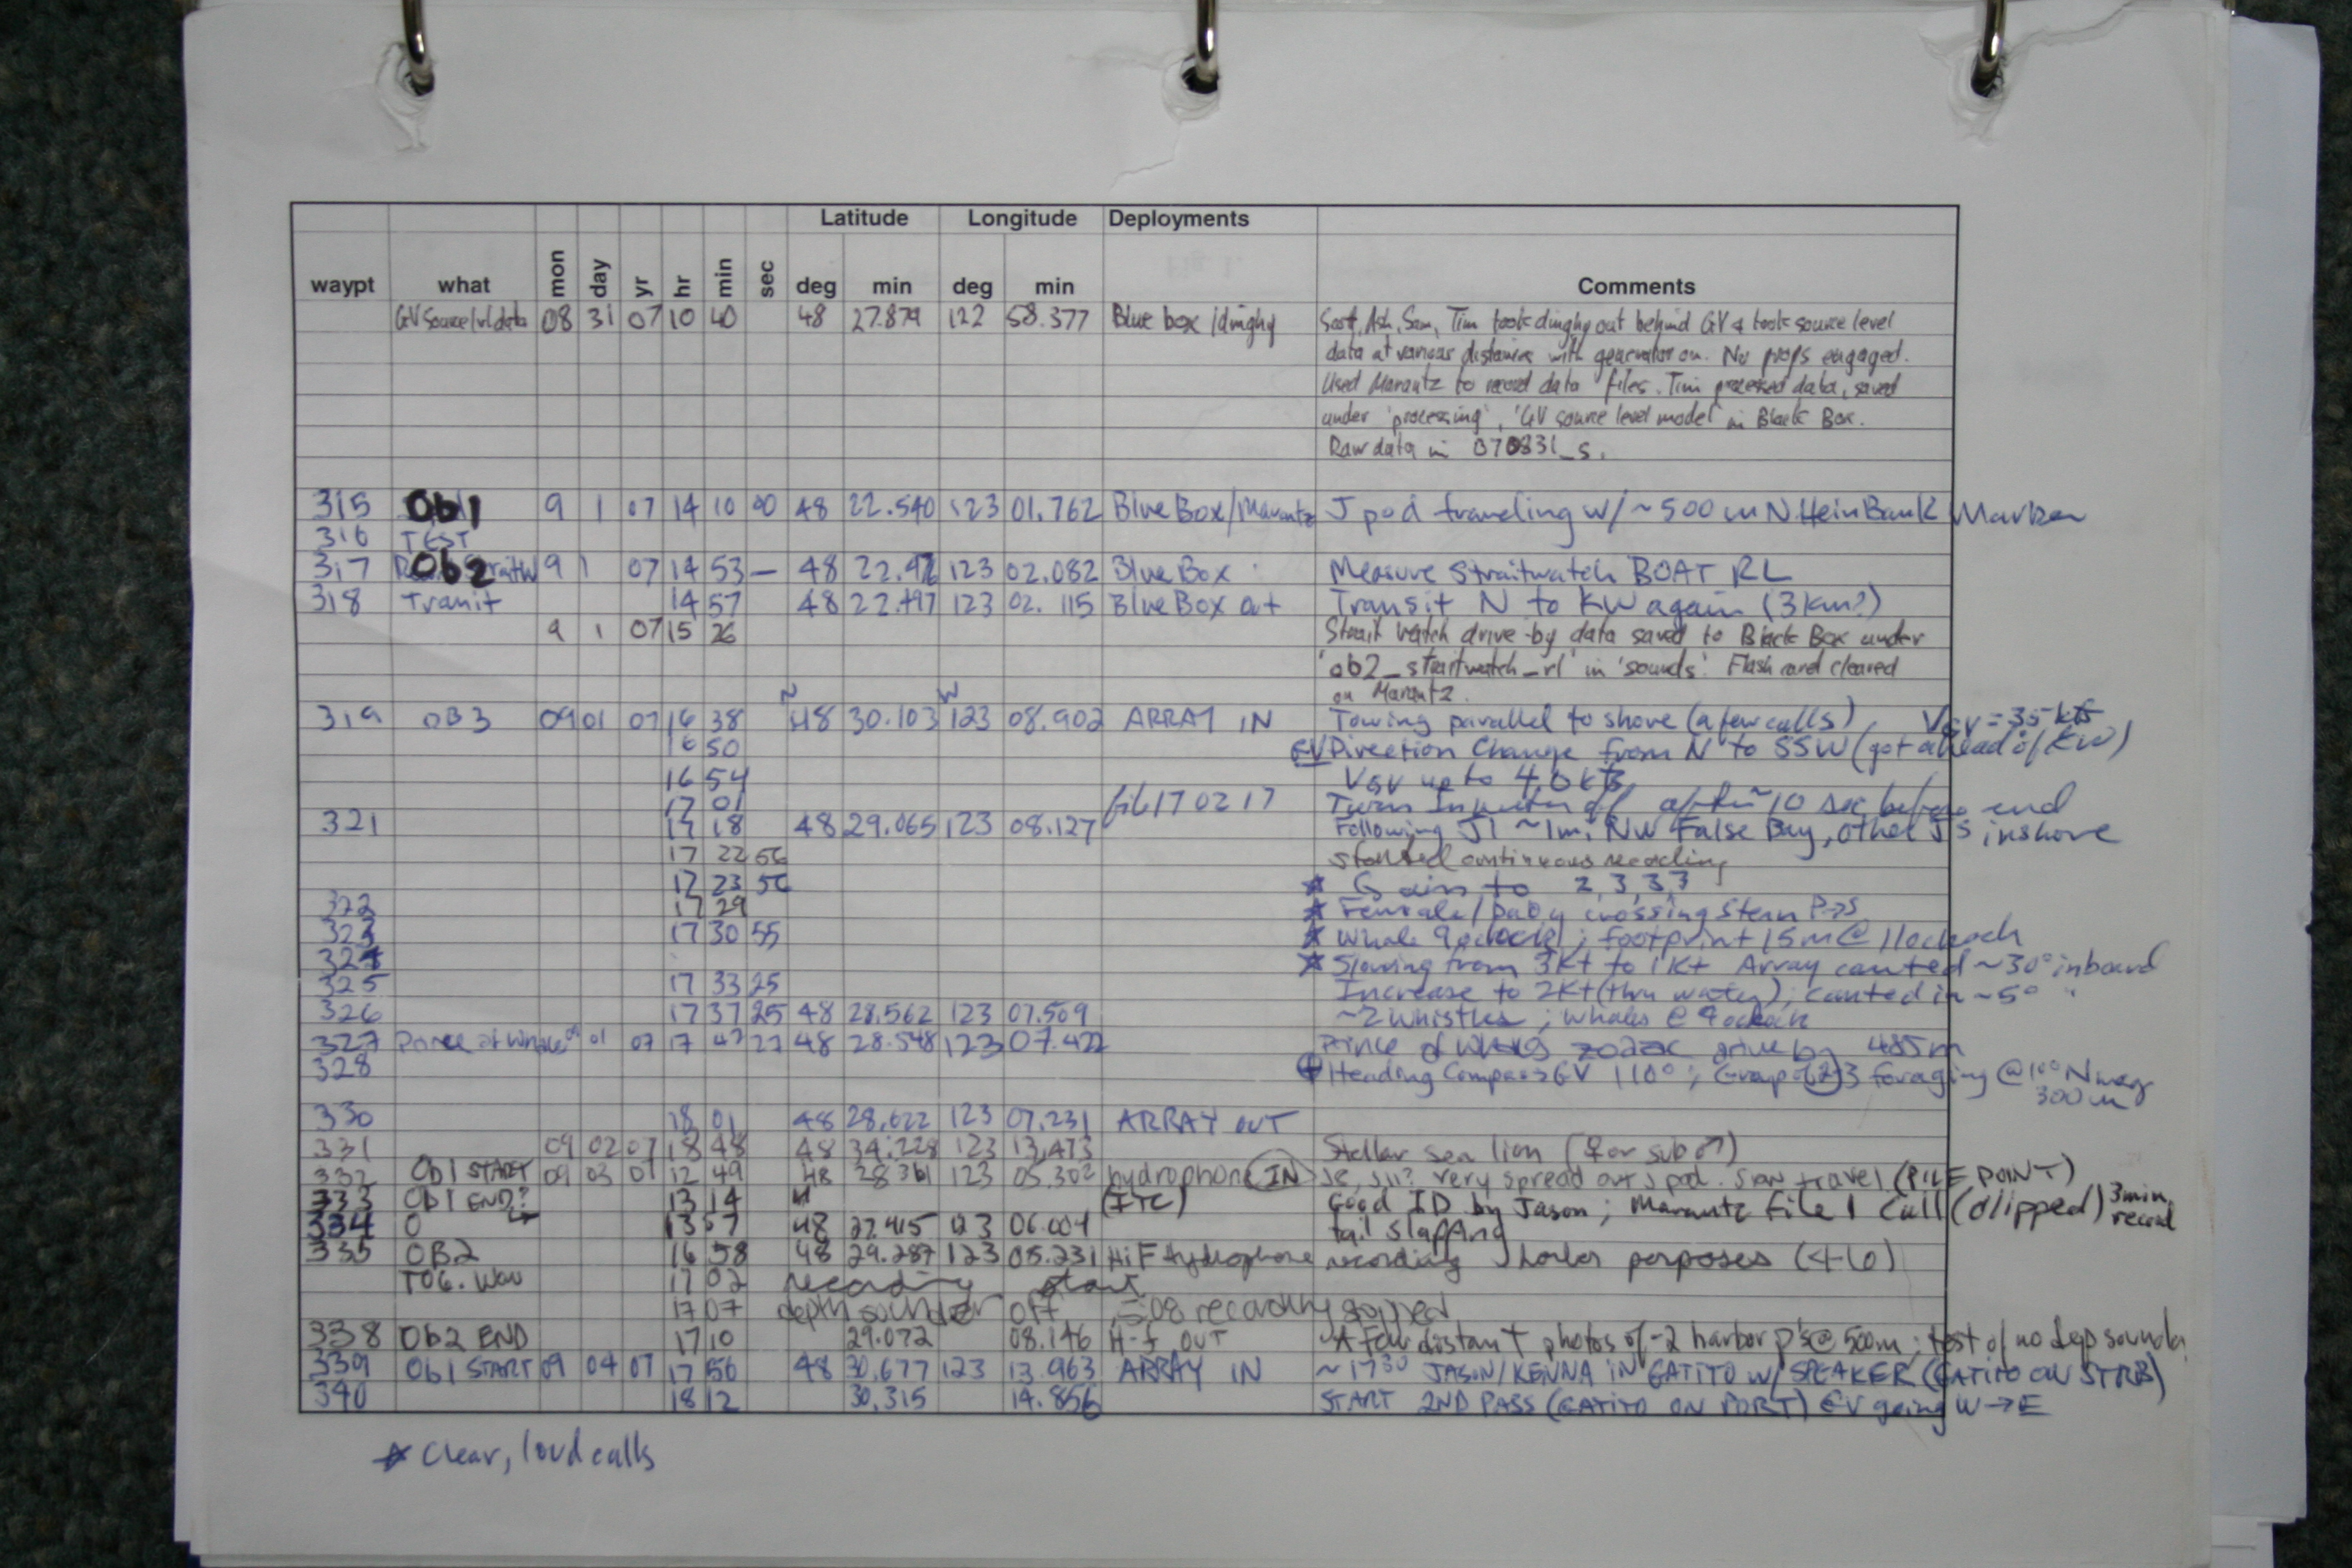 Latitude Longitude Deployments
waypt what mon day yr hr min sec deg min deg min Comments
GV Source lvl data 08 31 07 10 40 48 27.879 122 58.377 Blue box / dinghy Scott, Ash, Sam, Tim took dinghy out behind GV & took source level
data at various distances with generator on. No props engaged.
Used Marantz to record data files. Tim processed data, saved
under 'processing', 'GV source level model' in Black Box.
Raw data in 070831_s.
315 Ob1 9 1 07 14 10 00 48 22.540 123 01.762 Blue Box/Marantz J pod traveling w/ ~500 m N Hein Bank Marker
316 TEST
317 Ob2 9 1 07 14 53 — 48 123 02.082 Blue Box Measure Straitwatch BOAT RL
318 Transit 14 57 48 22.497 123 02.115 Blue Box out Transit N to KW again (3km?)
9 1 07 15 26 Strait Watch drive-by data saved to Black Box under
'ob2_straitwatch_rl' in 'sounds'. Flash card cleared
on Marantz.
N W
319 OB3 09 01 07 16 38 48 30.103 123 08.902 ARRAY IN Towing parallel to shore (a few calls),
16 50 GV Direction Change from N to SSW (got ahead of KW)
16 54 VGV up to 4.0 kts
17 01 file 17 02 17 Turn Inverter off after ~10 sec before end
321 17 18 48 29.065 123 08.127 Following J1 ~1mi NW False Bay, other J's inshore
17 22 56 started continuous recording
17 23 56 ★ Gain to 2,3,3,3
322 17 29 ★ Female / baby crossing stern P→S
323 17 30 55 ★ Whale 9 oclock; footprint 15m @ 11 oclock
324 ★ Slowing from 3kt to 1kt Array canted ~30° inboard
325 17 33 25 Increase to 2kt (thru water); canted in ~5° "
326 17 37 25 48 28.562 123 07.509 ~2 whistles; whales @ 9 oclock
327 Prince of Whales 09 01 07 17 47 27 48 28.548 123 07.422 Prince of Whales zodiac drive by 485m
328 Heading Compass GV 110°; Group of 2-3 foraging @ 300m
330 18 01 48 28.622 123 07.231 ARRAY OUT
331 09 02 07 18 48 48 34.228 123 13.473 Stellar sea lion (♀ or sub ♂)
332 Ob1 START 09 03 07 12 49 48 28.361 123 05.302 hydrophone IN very spread out J pod. Slow travel (PILE POINT)
333 Ob1 END? 13 14 (ITC) Good ID by Jason; Marantz file 1 call (clipped) 3 min record
334 O 13 57 48 27.415 123 06.004 tail slapping
335 OB2 16 58 48 29.287 123 08.231 Hi F Hydrophone recording harbor porposes (4-6)
T06.wav 17 02 recording start
17 07 depth sounder off, 5:08 recording
338 Ob2 END 17 10 29.072 08.146 H-f OUT A few distant photos of ~2 harbor p's @ 500m; test of no dep sounder
339 Ob1 START 09 04 07 17 56 48 30.677 123 13.963 ARRAY IN ~1730 JASON/KENNA IN GATITO W/ SPEAKER (GATITO ON STRB)
340 18 12 30.315 14.856 START 2ND PASS (GATITO ON PORT) GV going W→E
★ Clear, loud calls